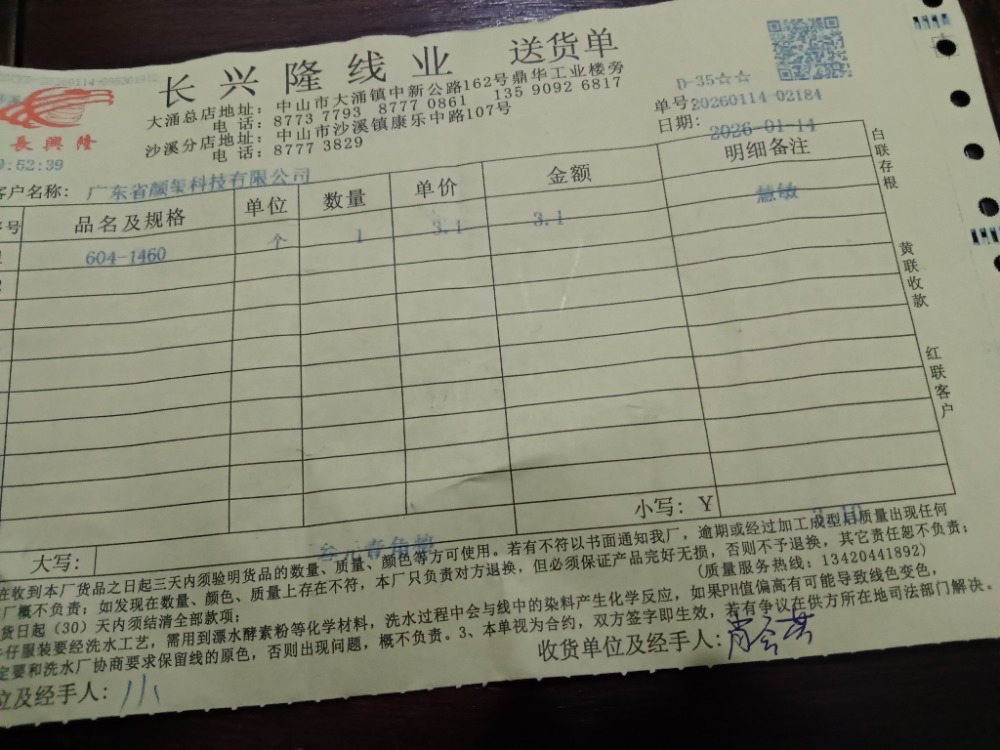 长兴隆线业 送货单
大涌总店地址：中山市大涌镇中新公路162号鼎华工业楼旁
电话：8773 7793 8777 0861 135 9092 6817
沙溪分店地址：中山市沙溪镇康乐中路107号
电话：8777 3829
長興隆
9:52:39
D-35☆☆
单号：20260114-02184
日期：2026-01-14
客户名称：广东省颜玺科技有限公司
号 品名及规格 单位 数量 单价 金额 明细备注
604-1460 个 1 3.1 3.1 慧敏
小写：￥ 3.10
大写：叁元壹角整
白联存根
黄联收款
红联客户
在收到本厂货品之日起三天内须验明货品的数量、质量、颜色等方可使用。若有不符以书面通知我厂，逾期或经过加工成型后质量出现任何
厂概不负责；如发现在数量、颜色、质量上存在不符，本厂只负责对方退换，但必须保证产品完好无损，否则不予退换，其它责任恕不负责；
货日起（30）天内须结清全部款项； （质量服务热线：13420441892）
仔服装要经洗水工艺，需用到漂水酵素粉等化学材料，洗水过程中会与线中的染料产生化学反应，如果PH值偏高有可能导致线色变色，
定要和洗水厂协商要求保留线的原色，否则出现问题，概不负责。3、本单视为合约，双方签字即生效，若有争议在供方所在地司法部门解决。
位及经手人： 收货单位及经手人：